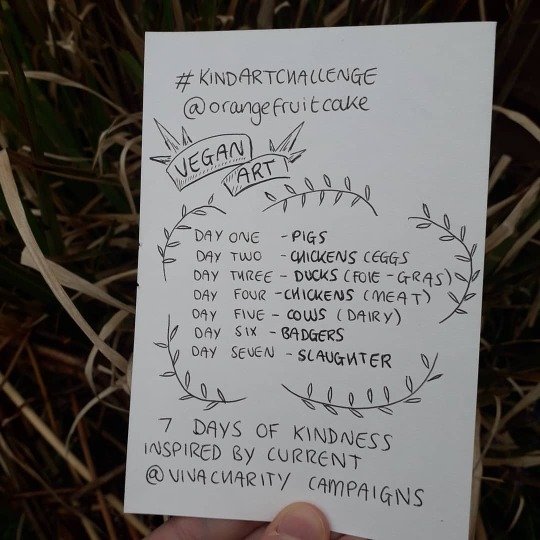 #KINDARTCHALLENGE
@orangefruitcake
VEGAN
ART
DAY ONE - PIGS
DAY TWO - CHICKENS (EGGS
DAY THREE - DUCKS (FOIE-GRAS)
DAY FOUR - CHICKENS (MEAT)
DAY FIVE - COWS (DAIRY)
DAY SIX - BADGERS
DAY SEVEN - SLAUGHTER
7 DAYS OF KINDNESS
INSPIRED BY CURRENT
@VIVACHARITY CAMPAIGNS